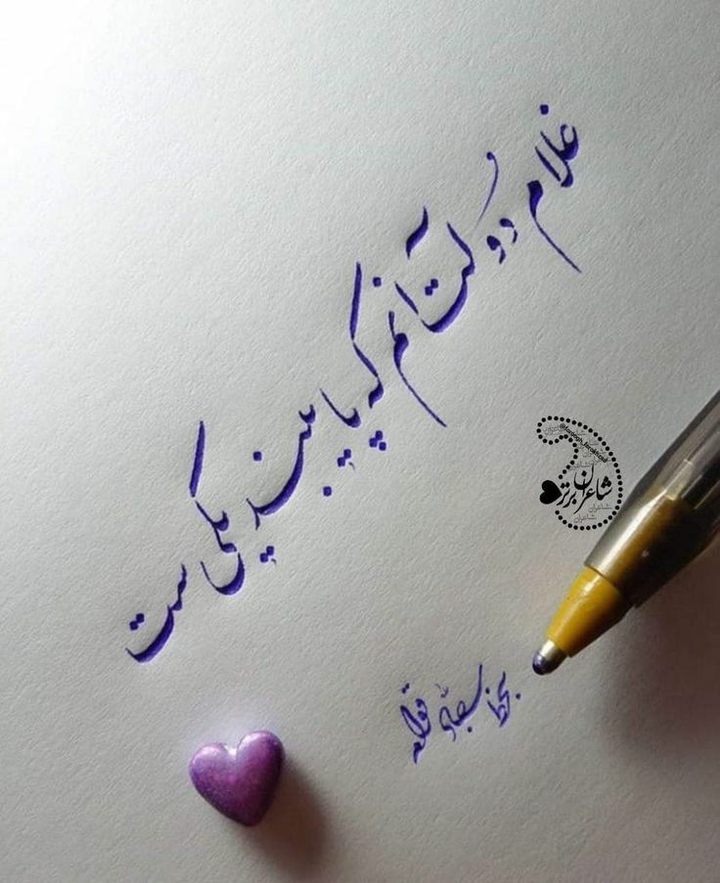 غلام دولت آنم که پایبند یکی ست
شاعران برتر
شاعران
بخط